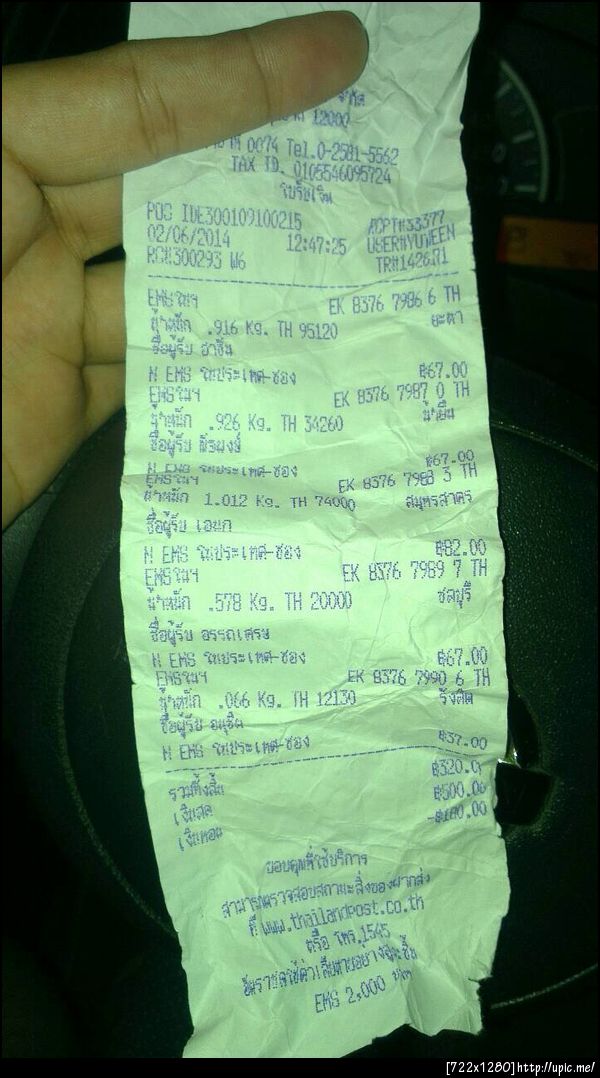 12000
0074 Tel.0-2581-5562
TAX ID. 0105546095724
ใบรับเงิน
POS IDE300109100215
02/06/2014 12:47:25
RC#300293 W6
ACPT#33377
USER#YUWEEN
EMSในฯ EK 8376 7986 6 TH
น้ำหนัก .916 Kg. TH 95120 ยะหา
ชื่อผู้รับ
N EMS ในประเทศ-ซอง ฿67.00
EMSในฯ EK 8376 7987 0 TH
น้ำหนัก .926 Kg. TH 34260 น้ำยืน
ชื่อผู้รับ พีรพงษ์
N EMS ในประเทศ-ซอง ฿67.00
EMSในฯ EK 8376 7988 3 TH
น้ำหนัก 1.012 Kg. TH 74000 สมุทรสาคร
ชื่อผู้รับ เอนก
N EMS ในประเทศ-ซอง ฿82.00
EMSในฯ EK 8376 7989 7 TH
น้ำหนัก .578 Kg. TH 20000 ชลบุรี
ชื่อผู้รับ อรรถเศรษ
N EMS ในประเทศ-ซอง ฿67.00
EMSในฯ EK 8376 7990 6 TH
น้ำหนัก .066 Kg. TH 12130 รังสิต
ชื่อผู้รับ อนุชิต
N EMS ในประเทศ-ซอง ฿37.00
รวมทั้งสิ้น ฿320.0
เงินสด ฿500.00
เงินทอน -฿180.00
ขอบคุณที่ใช้บริการ
สามารถตรวจสอบสถานะสิ่งของฝากส่ง
ที่ www.thailandpost.co.th
หรือ โทร.1545
อัตราชดใช้ค่าเสียหายอย่างสูงชิ้น
EMS 2,000 บาท
[722x1280]http://upic.me/